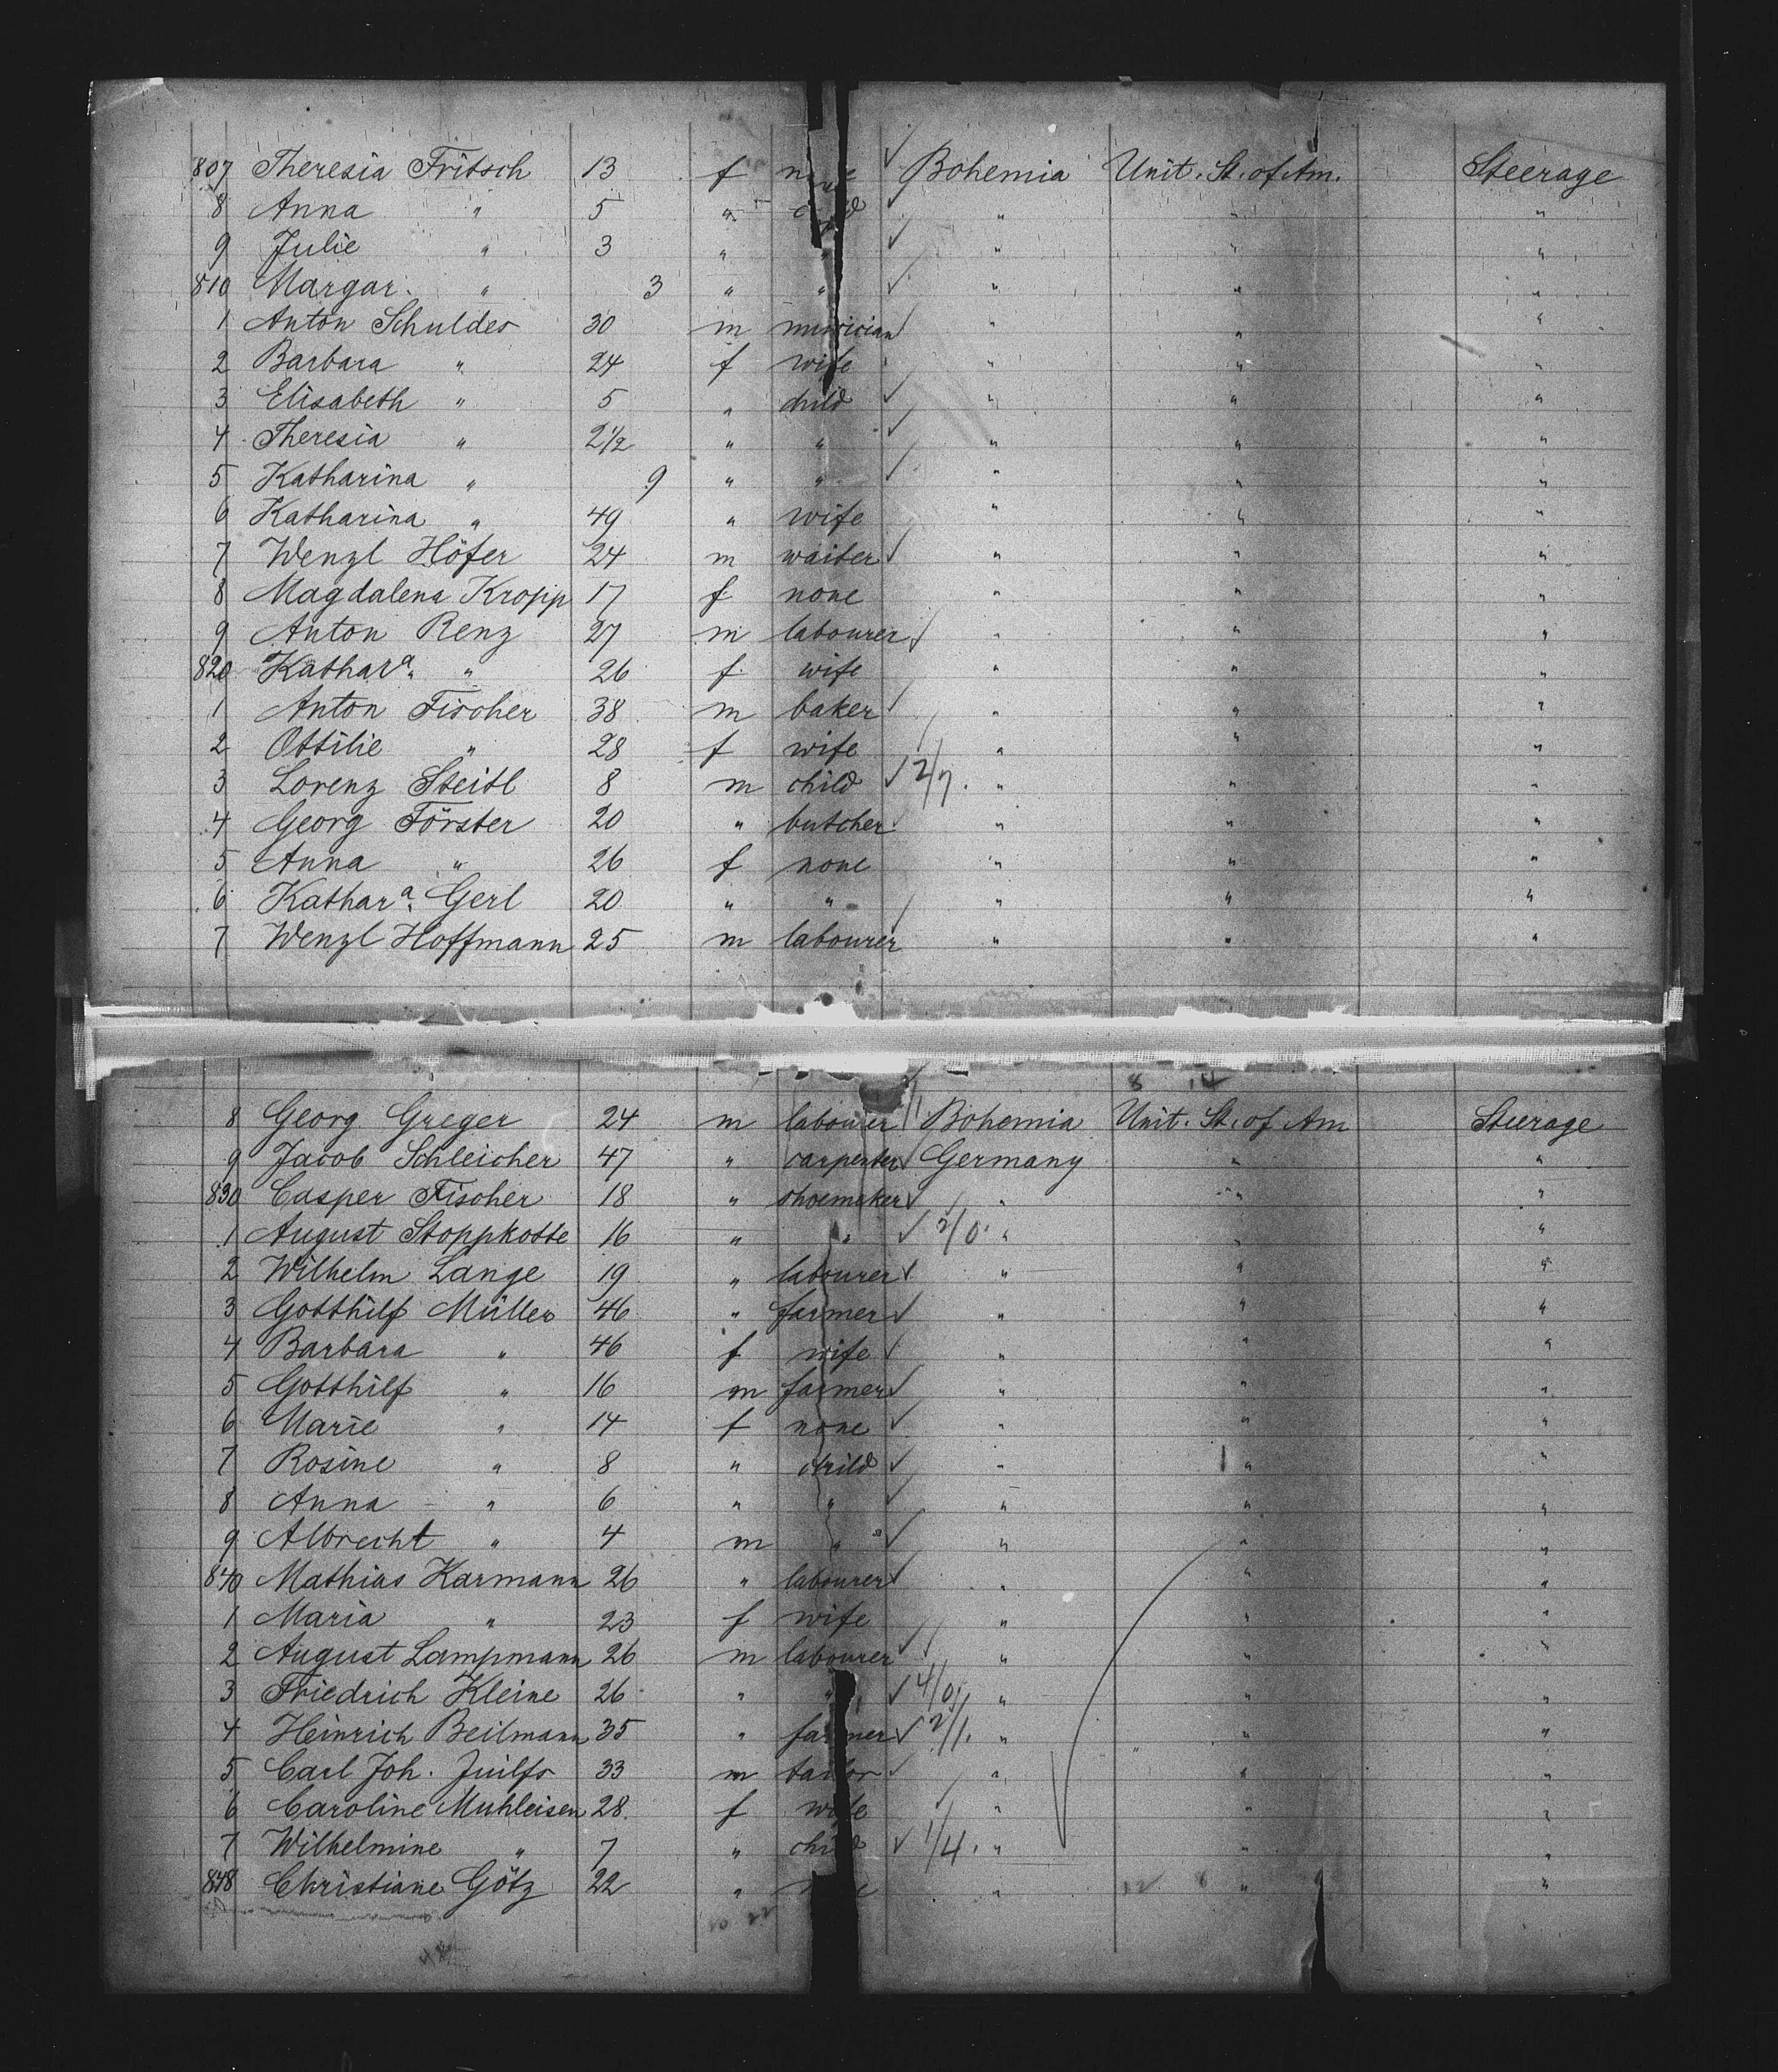 807 Theresia Fritsch 13 f none Bohemia Unit. St. of Am. Steerage
8 Anna " 5 " child " " "
9 Julie " 3 " " " " "
810 Margar. " 3 " " " " "
1 Anton Schuldes 30 m musician " " "
2 Barbara " 24 f wife " " "
3 Elisabeth " 5 " child " " "
4 Theresia " 2 1/2 " " " " "
5 Katharina " 9 " " " " "
6 Katharina " 49 " wife " " "
7 Wenzl Höfer 24 m waiter " " "
8 Magdalena Kropp 17 f none " " "
9 Anton Renz 27 m labourer " " "
820 Kathara. " 26 f wife " " "
1 Anton Fischer 38 m baker " " "
2 Ottilie " 28 f wife " " "
3 Lorenz Steitl 8 m child 2/7. " " "
4 Georg Förster 20 " butcher " " "
5 Anna " 26 f none " " "
6 Kathara. Gerl 20 " " " " "
7 Wenzl Hoffmann 25 m labourer " " "
8 14
8 Georg Greger 24 m labourer Bohemia Unit. St. of Am Steerage
9 Jacob Schleicher 47 " carpenter Germany " "
830 Casper Fischer 18 " shoemaker " " "
1 August Stoppkotte 16 " " 2/0. " " "
2 Wilhelm Lange 19 " labourer " " "
3 Gotthilf Müller 46 " farmer " " "
4 Barbara " 46 f wife " " "
5 Gotthilf " 16 m farmer " " "
6 Marie " 14 f none " " "
7 Rosine " 8 " child " " "
8 Anna " 6 " " " " "
9 Albrecht " 4 m " " " "
840 Mathias Karmann 26 " labourer " " "
1 Maria " 23 f wife " " "
2 August Lampmann 26 m labourer " " "
3 Friedrich Kleine 26 " " 4/0. " " "
4 Heinrich Beilmann 35 " farmer 2/1. " " "
5 Carl Joh. Juilfs 33 m tailor " " "
6 Caroline Muhleisen 28. f wife " " "
7 Wilhelmine " 7 " child 1/4. " " "
848 Christiane Götz 22 " " " "